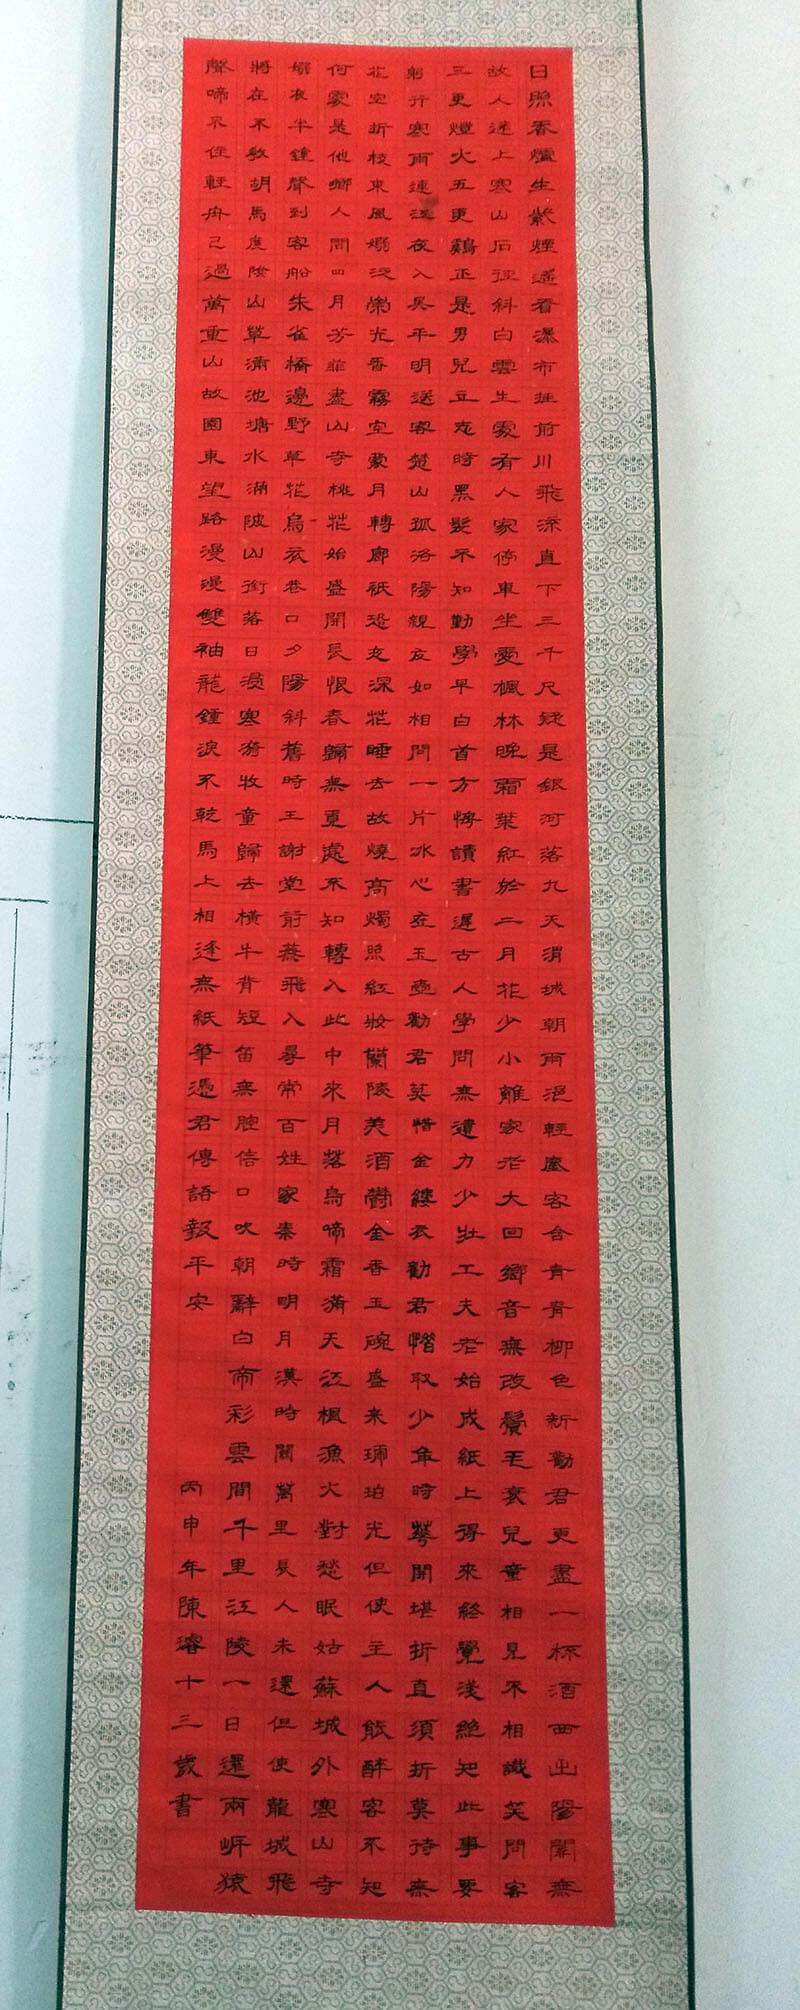 日照香爐生紫煙遙看瀑布挂前川飛流直下三千尺疑是銀河落九天渭城朝雨浥輕塵客舍青青柳色新勸君更盡一杯酒西出陽關無
故人遠上寒山石徑斜白雲生處有人家停車坐愛楓林晚霜葉紅於二月花少小離家老大回鄉音無改鬢毛衰兒童相見不相識笑問客
三更燈火五更鷄正是男兒立志時黑髮不知勤學早白首方悔讀書遲古人學問無遺力少壯工夫老始成紙上得來終覺淺絕知此事要
躬行寒雨連江夜入吳平明送客楚山孤洛陽親友如相問一片冰心在玉壺勸君莫惜金縷衣勸君惜取少年時華開堪折直須折莫待無
花空折枝東風嫋泛崇光香霧空蒙月轉廊祇恐夜深花睡去故燒高燭照紅妝蘭陵美酒鬱金香玉碗盛来琥珀光但使主人飲醉客不知
何處是他鄉人間四月芳菲盡山寺桃花始盛開長恨春歸無覓處不知轉入此中來月落烏啼霜滿天江楓漁火對愁眠姑蘇城外寒山寺
嫋夜半鐘聲到客船朱雀橋邊野草花烏衣巷口夕陽斜舊時王謝堂前燕飛入尋常百姓家秦時明月漢時關萬里長人未還但使龍城飛
將在不教胡馬度陰山草滿池塘水滿陂山銜落日浸寒漪牧童歸去橫牛背短笛無腔信口吹朝辭白帝彩雲間千里江陵一日還兩岸猿
聲啼不住輕舟已過萬重山故園東望路漫漫雙袖龍鍾淚不乾馬上相逢無紙筆憑君傳語報平安
丙申年陳璿十三歲書